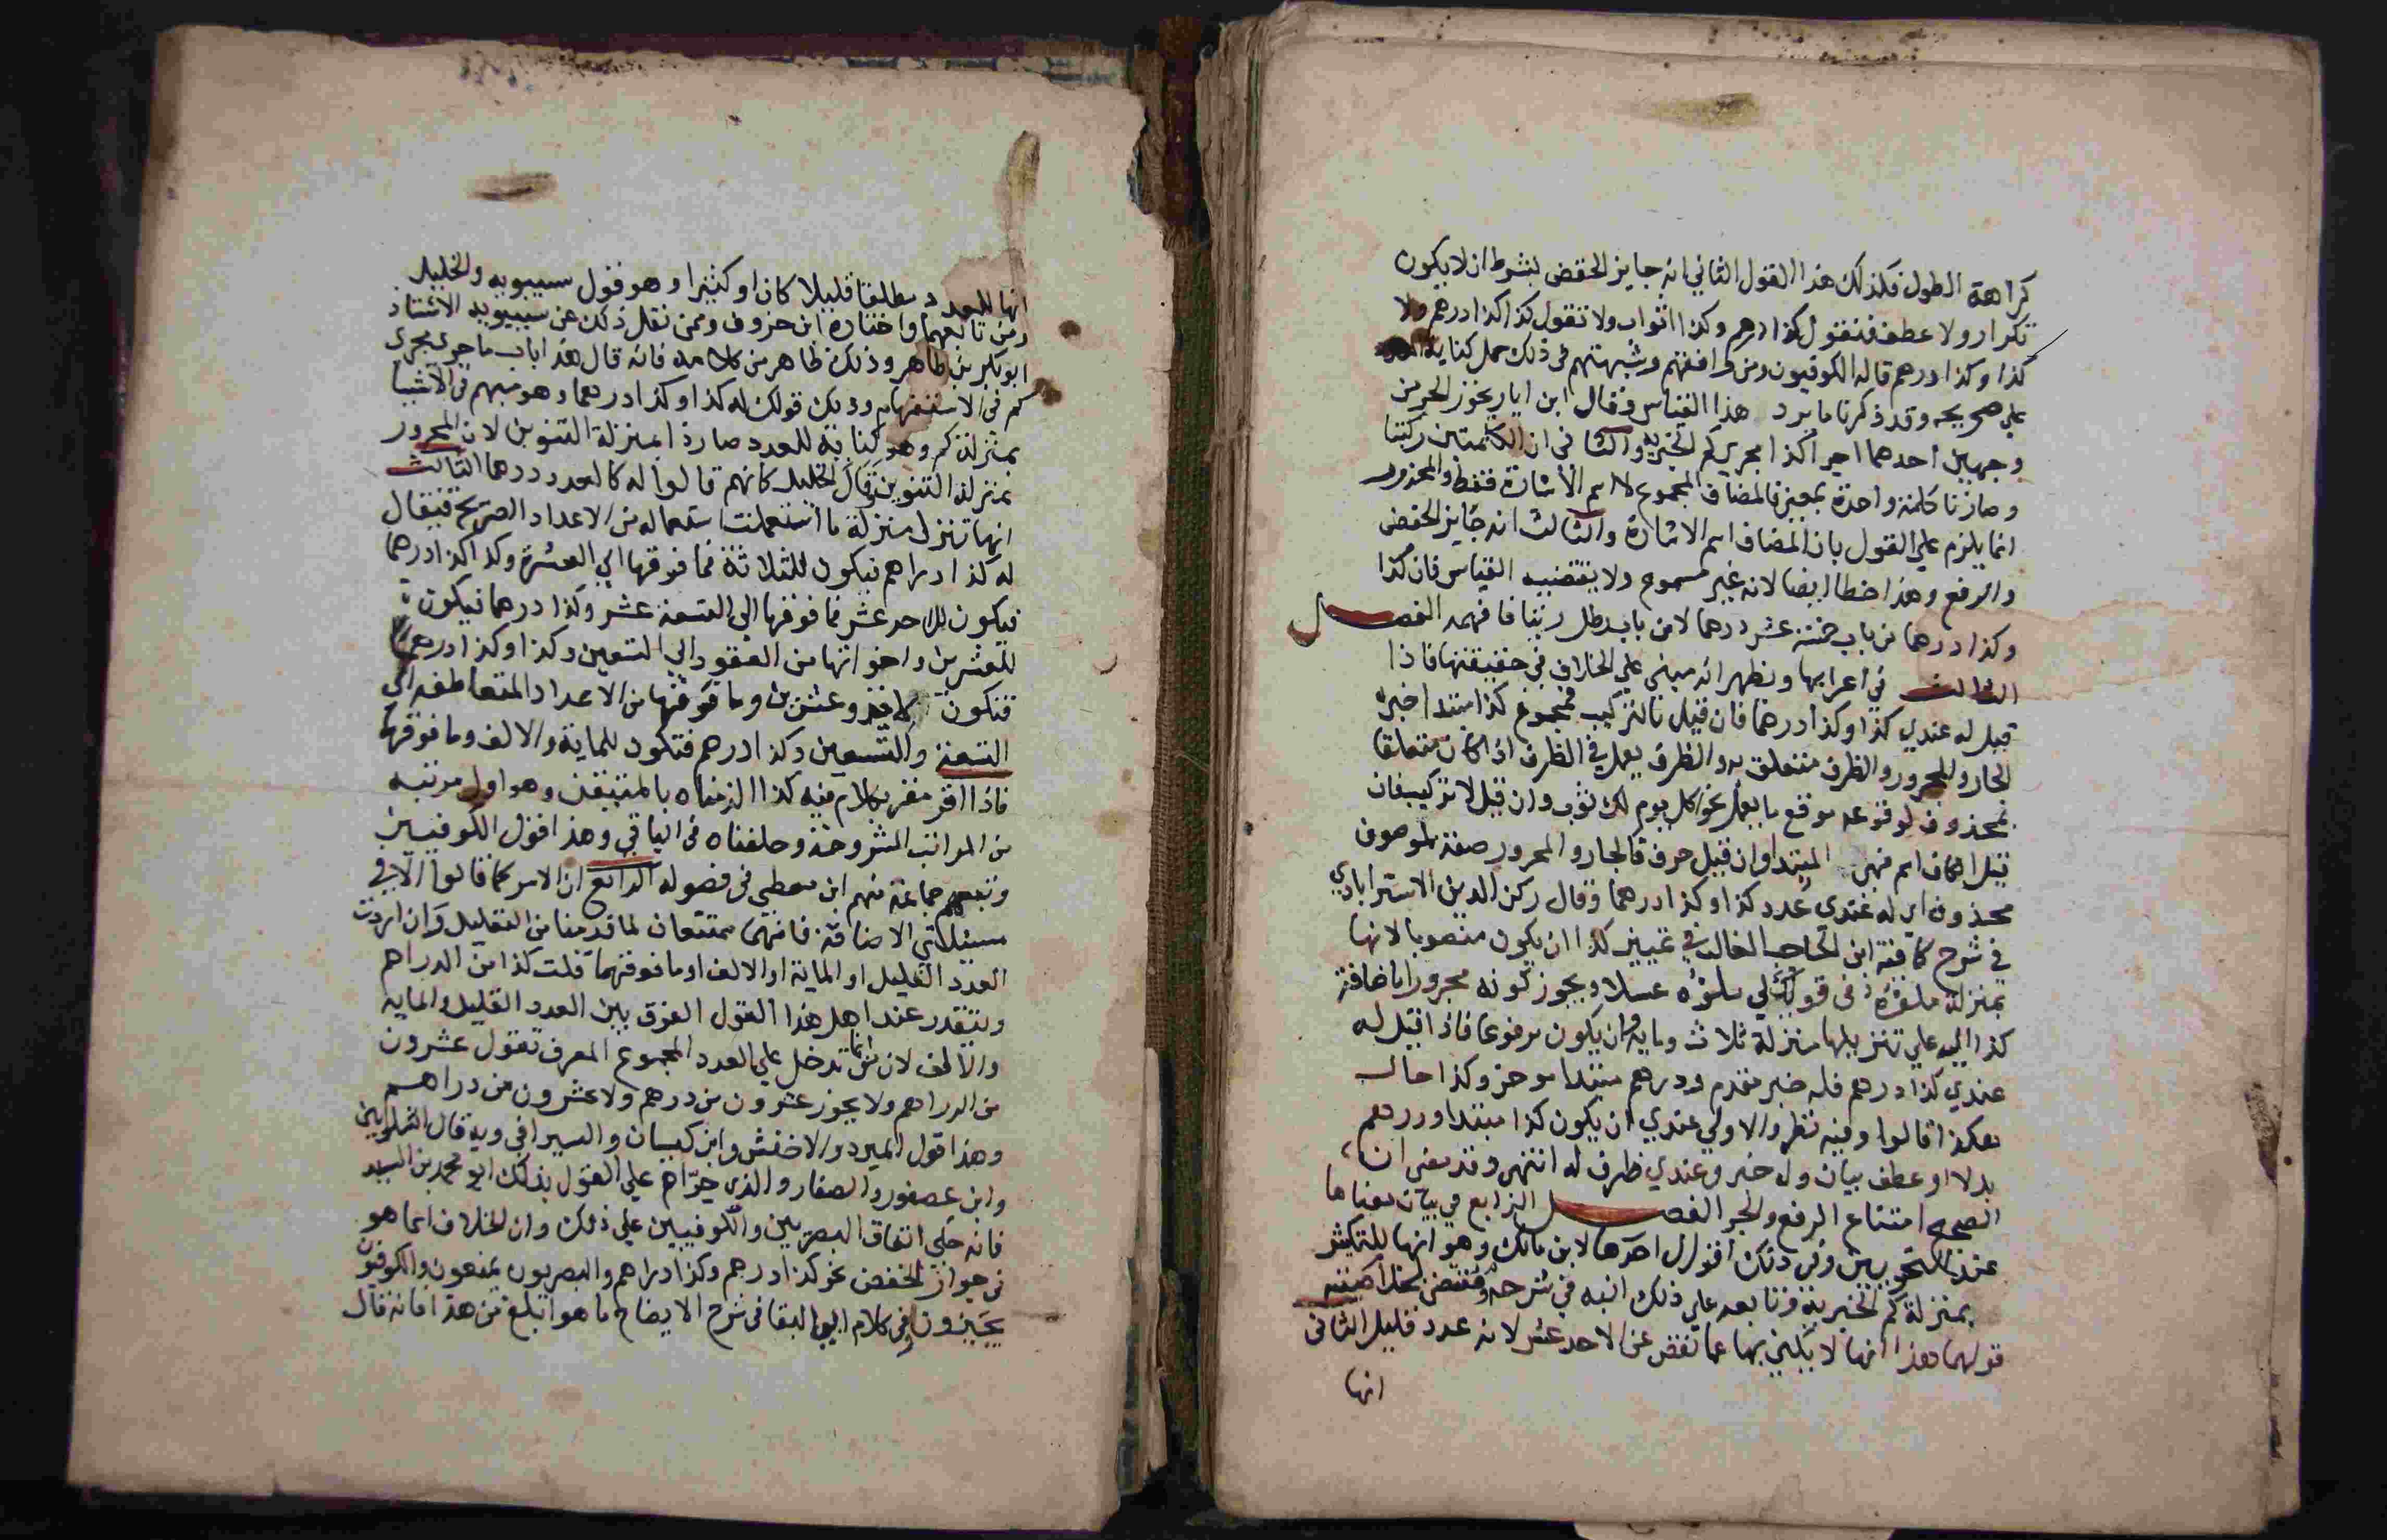 كراهة الطول فكذلك هذا القول الثاني انه جايز الخفض بشرط ان لا يكون
تكرار ولا عطف فتقول كذا درهم وكذا اثواب ولا تقول كذا كذا درهم ولا
كذا وكذا درهم قاله الكوفيون ومن وافقهم وشبهتهم في ذلك حمل كناية العدد
على صريحه وقد ذكرنا ما يرد هذا القياس وقال ابن اياز يجوز الجر من
وجهين احدهما اجرا كذا مجري كم الخبريه والثاني ان الكلمتين ركبتا
وصارتا كلمة واحدة فالمضاف المجموع لا اسم الاشارة فقط والمحذور
انما يلزم علي القول بان المضاف اسم الاشارة والثالث انه جايز الخفض
والرفع وهذا خطا ايضا لانه غير مسموع ولا يقتضيه القياس فان كذا
وكذا درهما من باب خمسة عشر درهما لا من باب رطل زيتا فافهمه الفصل
الثالث في اعرابها ونظهر انه مبني علي الخلاف في حقيقتها فاذا
قيل له عندي كذا وكذا درهما فان قيل بالتركيب فمجموع كذا مبتدا خبره
الجار والمجرور والظرف متعلق به والظرف يعمل في الظرف اذا كان متعلقا
بمحذوف لوقوعه موقع ما يعمل نحو اكل يوم لك ثوب وان قيل لا تركيب فان
قيل الكاف اسم فهي المبتدا وان قيل حرف فالجار والمجرور صفة لموصوف
محذوف اي له عندي عدد كذا وكذا درهما وقال ركن الدين الاستراباذي
في شرح كافية ابن الحاجب الغالب في تمييز كذا ان يكون منصوبا لانها
بمنزلة ملؤه في قولك لي ملؤه عسلا ويجوز كونه مجرورا باضافة
كذا اليه علي تنزيلها منزلة ثلاث ومايه وان يكون مرفوعا فاذا قيل له
عندي كذا درهم فله خبر مقدم ودرهم مبتدا موخر وكذا حال
هكذا قالوا وفيه نظر والاولي عندي ان يكون كذا مبتدا ودرهم
بدلا او عطف بيان وله خبر وعندي ظرف له انتهي وقد مضي ان
الصحيح امتناع الرفع والجر الفصل الرابع في بيان معناها
عند النحويين وفي ذلك اقوال احدها لابن مالك وهو انها للتكثير
بمنزلة كم الخبرية وتابعه علي ذلك ابنه في شرح خلاصته
قولهما هذا انها لا يكني بها عما نقص عن الاحد عشر لانه عدد قليل الثاني
انها
انها للعدد مطلقا قليلا كان او كثيرا وهو قول سيبويه والخليل
ومن تابعهما واختاره ابن خروف وممن نقل ذلك عن سيبويه الاستاد
ابو بكر بن طاهر وذلك ظاهر من كلامه فانه قال هذا باب ما جري مجري
كم في الاستفهام وذلك قولك له كذا وكذا درهما وهو مبهم في الاشيا
بمنزلة كم وهو كناية للعدد صار ذا بمنزلة التنوين لان المجرور
بمنزلة التنوين وقال الخليل كانهم قالوا له كالعدد درهما الثالث
انها تنزل منزلة ما استعملت استعماله من الاعداد الصريحة فيقال
له كذا دراهم فيكون للثلاثة فما فوقها الي العشرة وكذا كذا درهما
فيكون للاحد عشر فما فوقها الي التسعة عشر وكذا درهما فيكون
للعشرين واخواتها من العقود الي التسعين وكذا وكذا درهما
فتكون لاحد وعشرين وما فوقها من الاعداد المتعاطفه الي
التسعة والتسعين وكذا درهم فتكون للماية والالف وما فوقهما
فاذا اقر مقر بكلام فيه كذا الزمناه بالمتيقن وهو اول مرتبه
من المراتب المشروحة وحلفناه في الباقي وهذا قول الكوفيين
وتبعهم جماعة منهم ابن معطي في فصوله الرابع ان الامر كما قالوا الا في
مسئلتي الاضافة فانهما ممتنعان لما قدمنا من التعليل وان اردت
العدد القليل او الماية او الالف او ما فوقهما قلت كذا من الدراهم
ويتقدر عند اهل هذا القول الفرق بين العدد القليل والمايه
والالف لان من انما تدخل علي العدد المجموع المعرف تقول عشرون
من الدراهم ولا يجوز عشرون من درهم ولا عشرون من دراهم
وهذا قول المبرد والاخفش وابن كيسان والسيرافي وبه قال الشلوبين
وابن عصفور والصفار والذي جراهم علي القول بذلك ابو محمد بن السيد
فانه حكي اتفاق البصريين والكوفيين علي ذلك وان الخلاف انما هو
في جواز الخفض نحو كذا درهم وكذا دراهم والبصريون يمنعون والكوفيون
يجيزون وفي كلام ابي البقا في شرح الايضاح ما هو ابلغ من هذا فانه قال